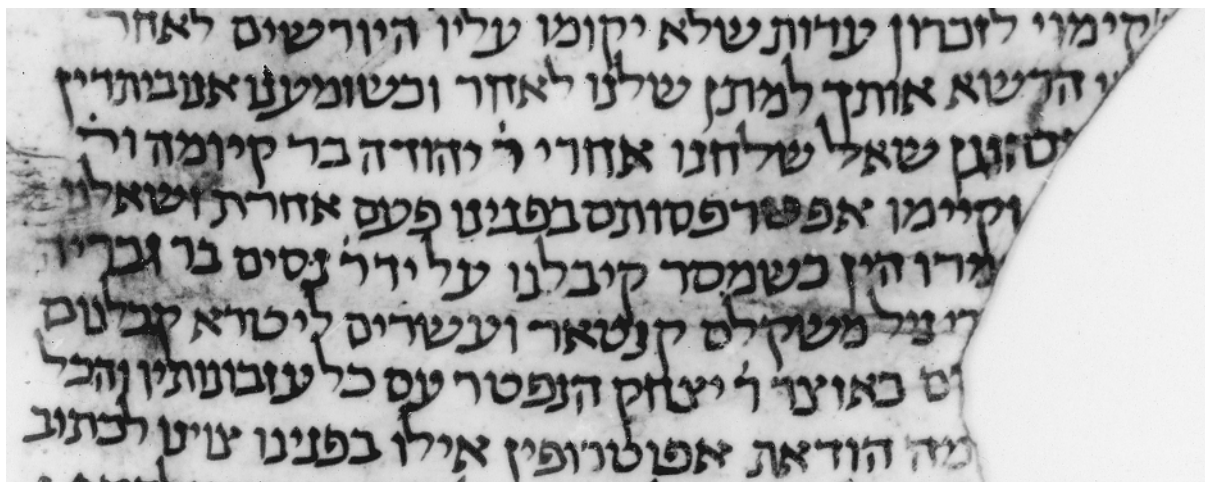 קימוי לזכרון עדות שלא יקומו עליו היורשים לאחר
הרשא אותך למתן שלנו לאחר וכשומענו אנו בית דין
שאל שלחנו אחרי ר יהודה בר קיומה ור
וקיימו אפשר פסותם בפנינו פעם אחרת ושאלנו
הין כשמסר קיבלנו על יד ר נסים בר גבריה
ניל משקלם קנטאר ועשרים ליטרא קבלנום
באוצר ר יצחק הנפטר עם כל עזבונותיו והכל
הודאת אפוטרופין אילו בפנינו צוינו לכתוב